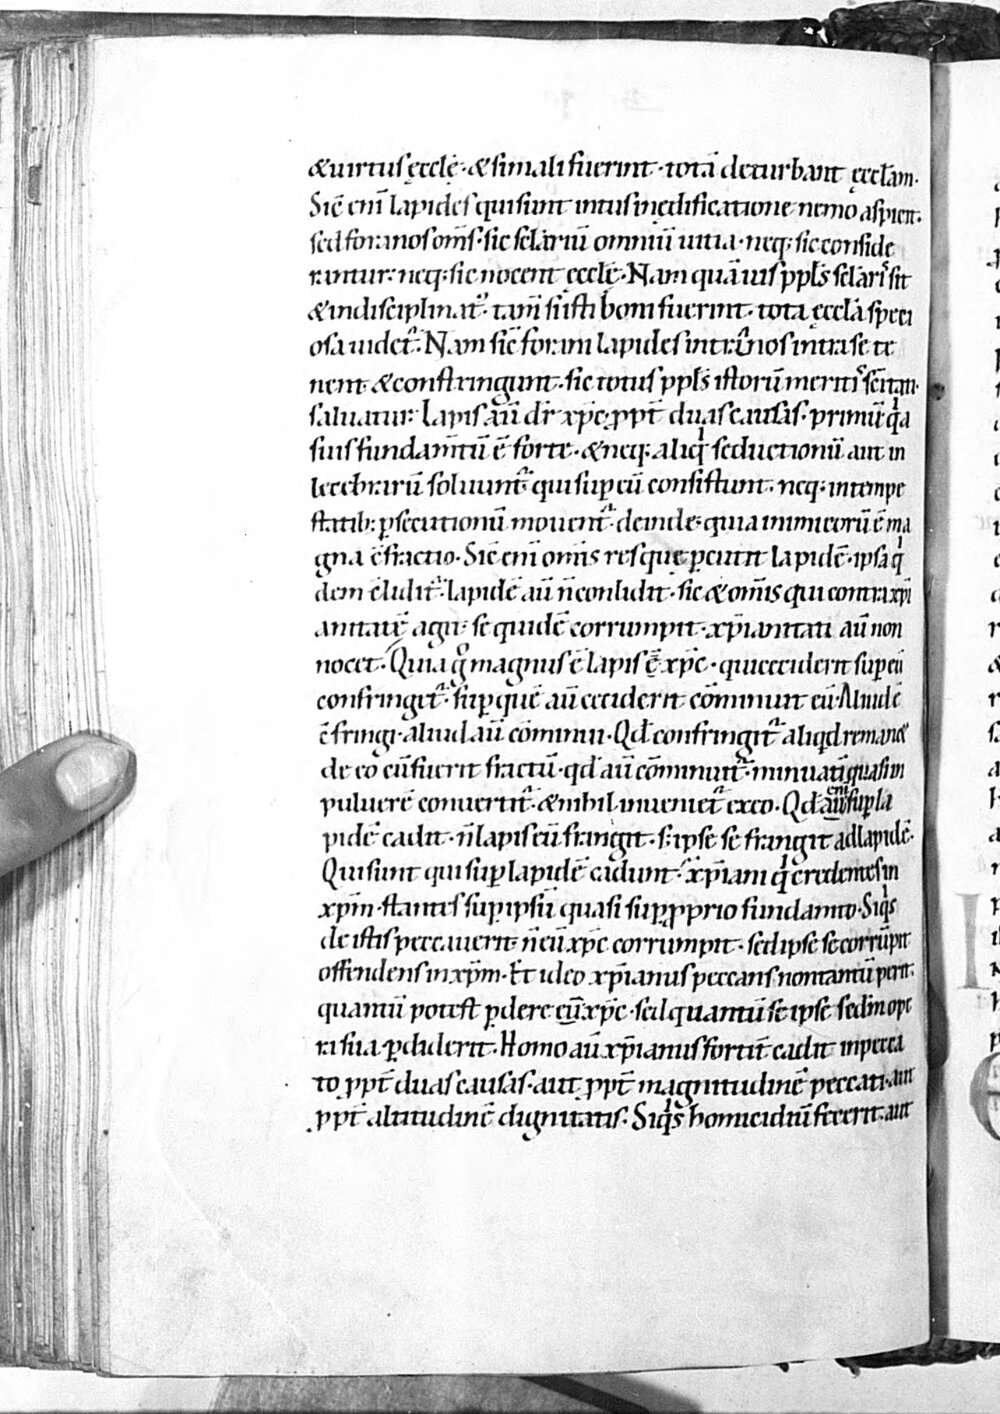 &uirtus ęcclę̄ · & si mali fuerint · totā deturbant ęccl̄am ·
Sic̄ eni̅ lapides qui sunt intus in ędificatione nemo aspicit ·
sed foranos om̄s · sic sclariū omniū uitia · neq; sic conside
rantur · neq; sic nocent ęcclę̄ · Nam quāuis ppl̄s sclaris sit
& indisciplinat᷒ · tam̄ si iusti boni fuerint · tota ęccl̄a speci
osa uidet᷑ · Nam sic̄ foram lapides int᷑nos intra se te
nent & constringunt · sic totus ppl̄s istorū meritis sc̄itatis
saluatur · Lapis aū dr̄ xp̄c ꝓpt̄ duas causas · primū qa
suis fundam̄tū ē forte · & neq; aliq̇ seductionū aut in
lecebrarū soluunt᷑ qui sup eū consistunt · neq; in tempe
statib; p̱secutionū mouent᷑ · deinde · quia inimicorū ē ma
gna c̄fractio · Sic̄ eni̅ om̄is res que p̱cutit lapidē · ipsa q̇
dem elidit᷑ · lapidē aū n̄ conludit · sic & om̄is qui contra xp̄i
anitatē agit · se quidē corrumpit · xp̄ianitati aū non
nocet · Quia g̊ magnus ē lapis ē xp̄c · qui ceciderit sup eū
confringit᷑ · sup quē aū ceciderit cōminuit eū · Aliud ē
c̄fringi · aliud aū cōminui · Qd̄ confringit᷑ aliq̇d remanet
de eo cū fuerit fractū · qd̄ aū cōminuit᷑ · minuatī quasi in
puluerē conuertit᷑ · & nihil inueniet᷑ ex eo · Qd̄ aū eni̅ sup la
pidē cadit · n̄ lapis eū frangit · s; ipse se frangit ad lapidē ·
Qui sunt qui sup lapidē cadunt · s̄ xp̄iani q̇ credentes in
xp̄m · stantes sup ipsū quasi sup ꝓprio fundam̄to · Siq̇s
de istis peccauerit · n̄ eū xp̄c corrumpit · sed ipse se corrūpit
offendens in xp̄m · Et ideo xp̄ianus peccans non tantū perit ·
quantū potest p̱dere eū xp̄c · sed quantū se ipse sedm̄ ope
ra sua p̱diderit · Homo aū xp̄ianus fortit̄ cadit in pecca
to ꝓpt̄ duas causas · aut ꝓpt̄ magnitudinē peccati · aut
ꝓpt̄ altitudinē dignitatis · Siq̇s homicidiū fecerit · aut